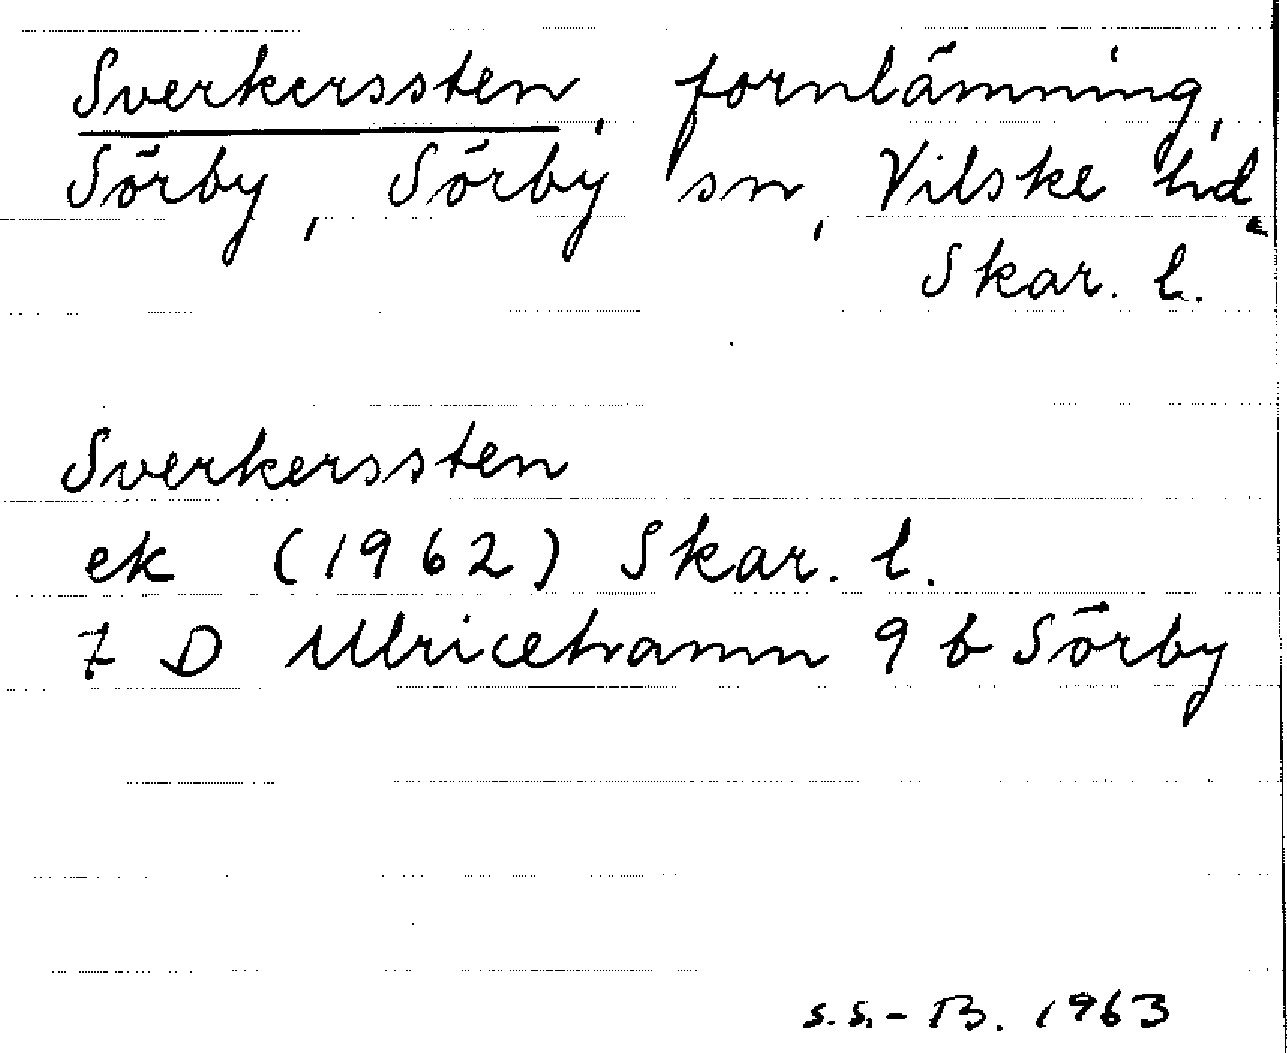 Sverkerssten, fornlämning,
Sörby, Sörby sn, Vilske hd,
Skar. l.
Sverkerssten
ek (1962) Skar. l.
7 D Ulricehamn 9 b Sörby
S.S.-B. 1963